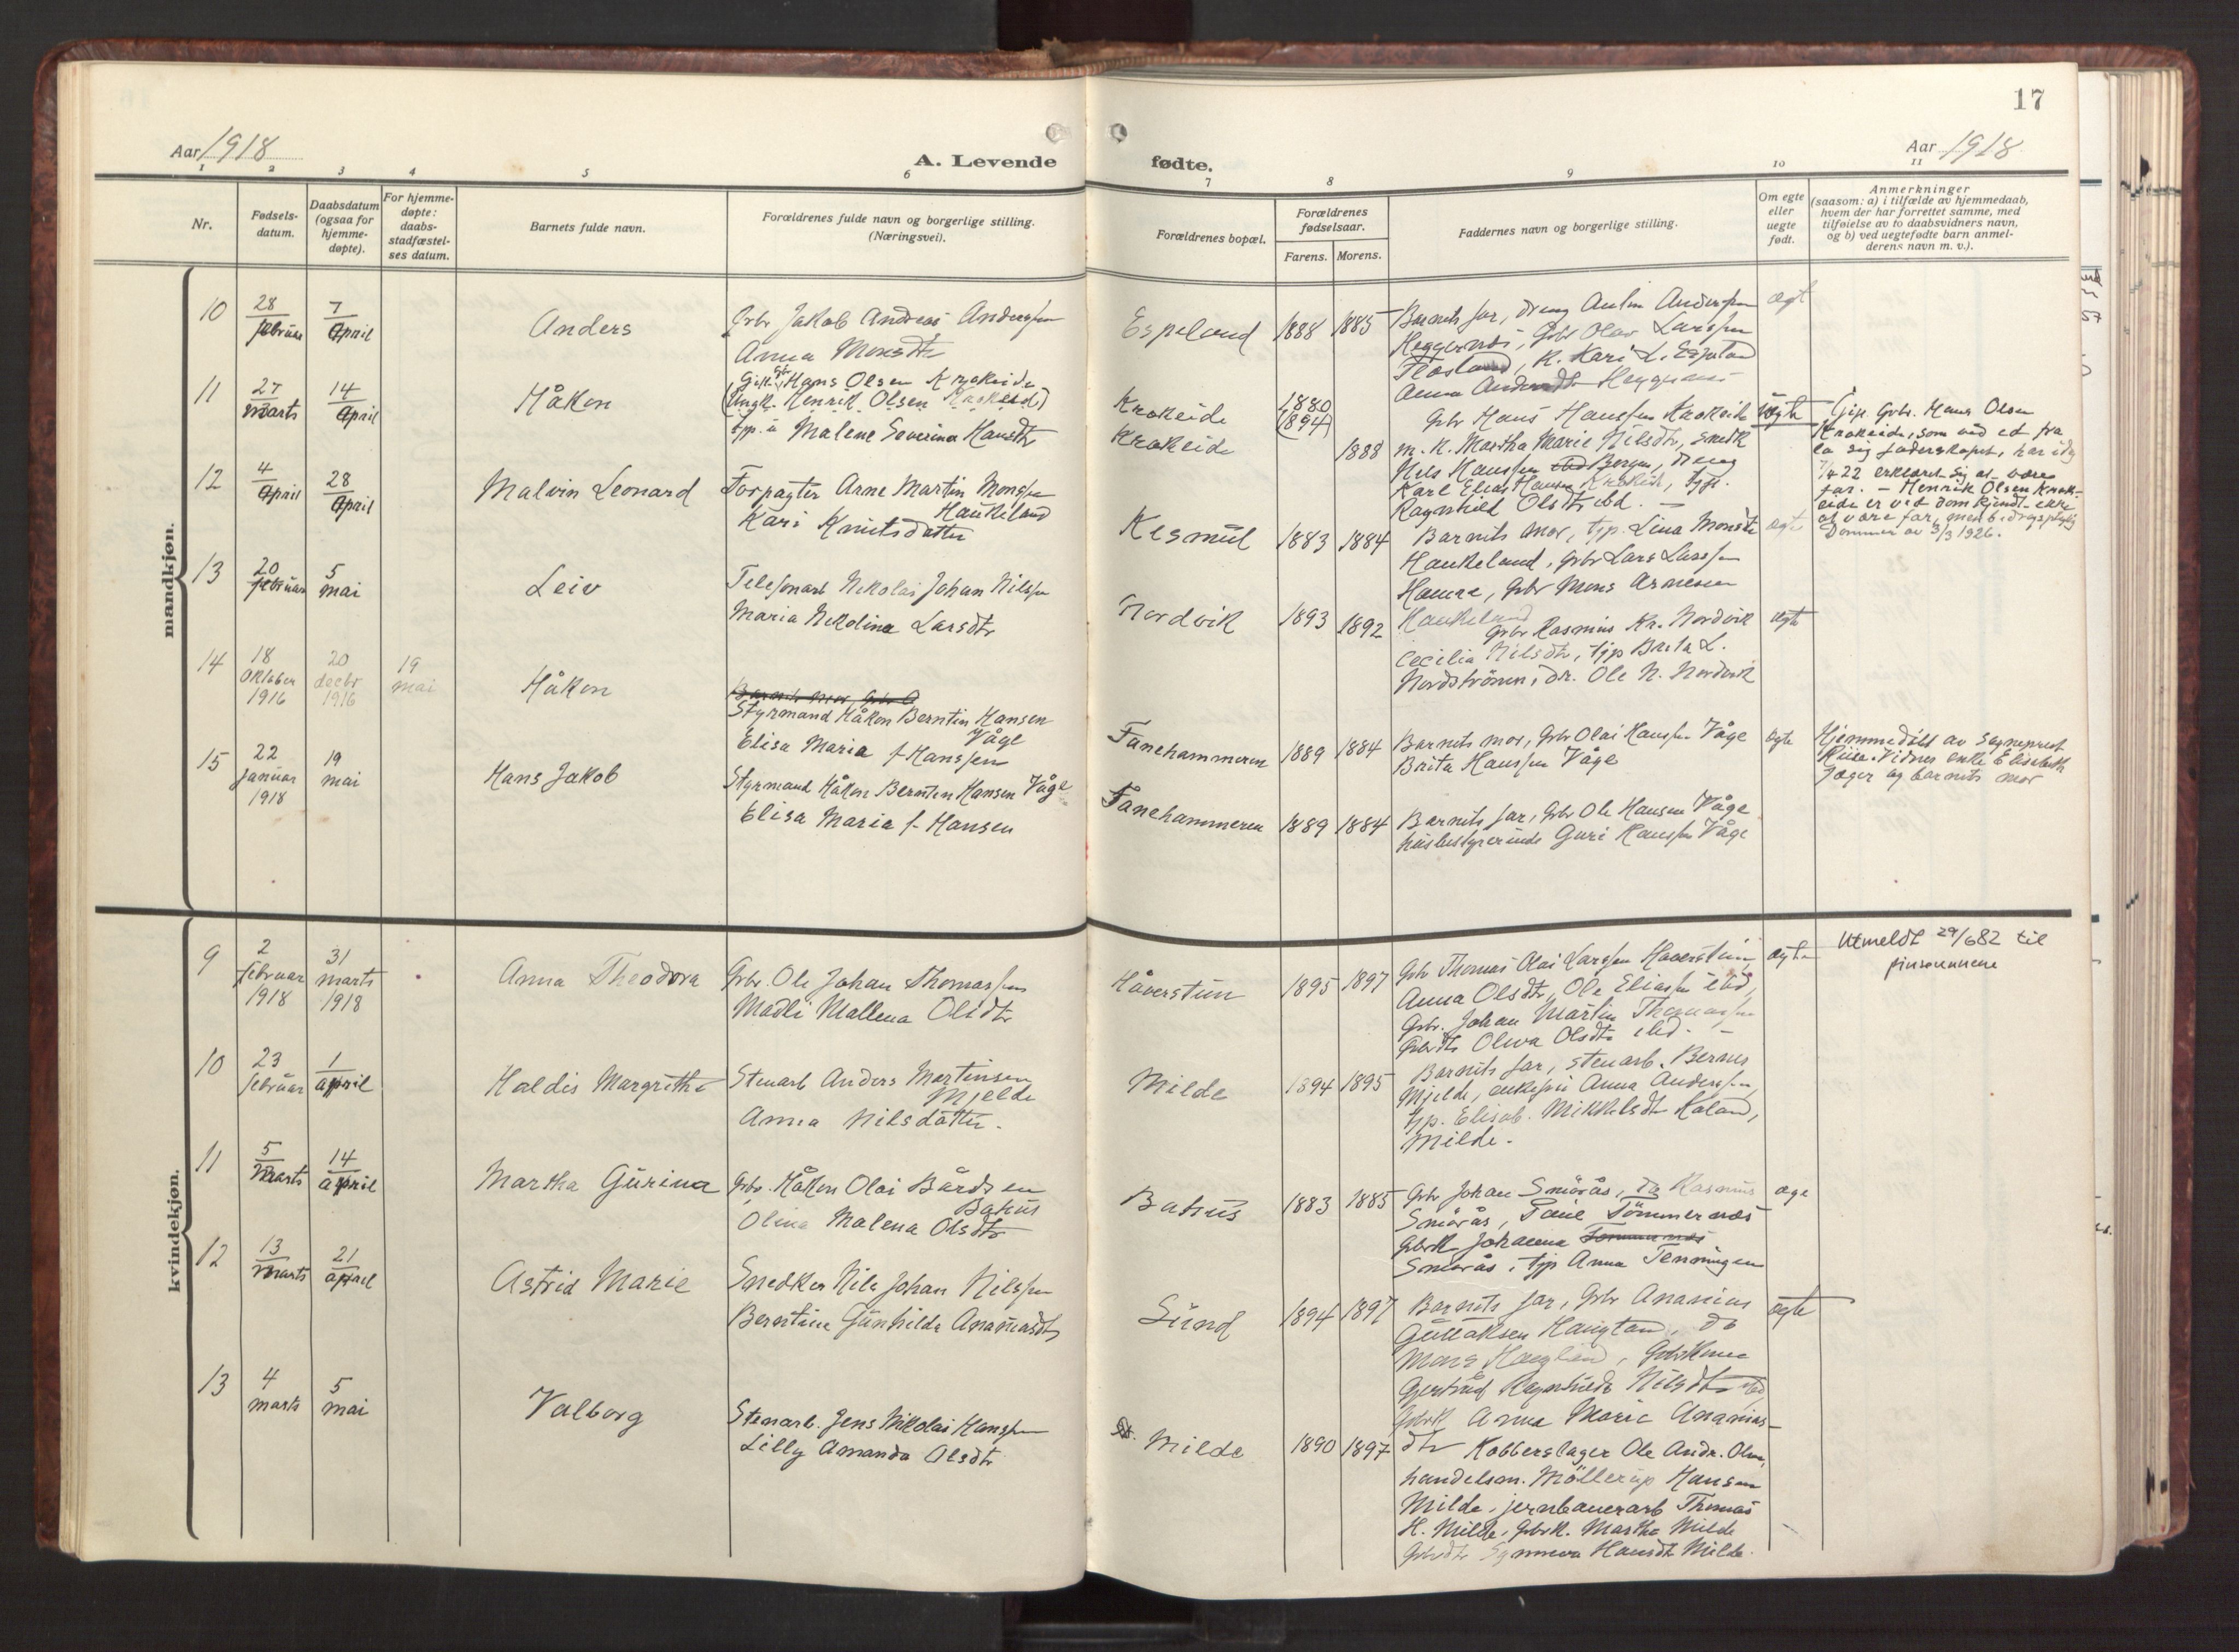 17
Aar 1918
A. Levende
fødte.
Aar 1918
1 2 3 4 5 6 7 8 9 10 11
Nr.
Fødsels-
datum.
Daabsdatum
(ogsaa for
hjemme-
døpte).
For hjemme-
døpte:
daabs-
stadfæstel-
ses datum.
Barnets fulde navn.
Forældrenes fulde navn og borgerlige stilling.
(Næringsvei).
Forældrenes bopæl.
Forældrenes
fødselsaar.
Farens. Morens.
Faddernes navn og borgerlige stilling.
Om egte
eller
uegte
født.
Anmerkninger
(saasom: a) i tilfælde av hjemmedaab,
hvem der har forrettet samme, med
tilføielse av to daabsvidners navn,
og b) ved uegtefødte barn anmel-
derens navn m. v.).
mandkjøn.
10
28
februar
7
April
Anders
Gbr Jakob Andreas Anderssen
Anna Monsdtr
Espeland
1888 1885
Barnets far, dreng Anderssen
Heggernes, Gbr Olav Larssen
Flösland, K. Kari L. Espeland
Anna Heggernes
ægt
11
27
marts
14
April
Håkon
Gift Gbr Hans Olsen Krokeide
(Ungk. Henrik Olsen Krokeid)
tjp. Malene Severina Hansdtr
Krokeide
Krokeide
1880
(1894)
1888
Gbr Hans Hanssen Krokeide
m. K. Martha Marie Nilsdtr, snedk
Nils Hanssen Bergen, dreng
Karl Elias Hanssen Krokeide, tjp.
Ragnhild Olsdtr ibd.
uegte
Gift Gbr. Hans Olsen
Krokeide, som ved et fra
la sig faderskapet, har idg
7/4 22 erklæret sig at være
far. – Henrik Olsen Krok-
eide er ved dom kjendt ikke
at være far, men bidragspligtig
Dommer av 3/3 1926.
12
4
April
28
April
Malvin Leonard
Forpagter Arne Martin Monssen
Haukeland
Kari Knutsdatter
Kismul
1883 1884
Barnets mor, tjp. Lina Monsdtr
Haukeland, Gbr Lars Larssen
Hamre, Gbr Mons Arnesen
Haukeland
ægte
13
20
februar
5
mai
Leiv
Telefonarb Nikolai Johan Nilssen
Maria Nikolina Larsdtr
Nordvik
1893 1892
Gbr Rasmus Kr. Nordvik
Cecilia Nilsdtr, tjp Brita L.
Nordströnen, dr. Ole N. Nordvik
ægte
14
18
Oktober
1916
20
decbr
1916
19
mai
Håkon
Styrmand Håkon Berntin Hansen
Våge
Elisa Maria f. Hanssen
Fanehammeren
1889 1884
Barnets mor, Gbr Olai Hanssen Våge
Brita Hanssen Våge
ægte
Hjemmedöbt av sogneprest
Riise. Vidner enke Elisabeth
Jæger og barnets mor
15
22
Januar
1918
19
mai
Hans Jakob
Styrmand Håkon Berntin Hansen Våge
Elisa Maria f. Hansen
Fanehammeren
1889 1884
Barnets far, Gbr Ole Hansen Våge
husbestyrerinde Guri Hanssen Våge
kvindekjøn.
9
2
februar
1918
31
marts
1918
Anna Theodora
Gbr. Ole Johan Thomassen
Madli Mallena Olsdtr
Håverstun
1895 1897
Gbr Thomas Olai Larssen Haverstun
Anna Olsdtr, Ole Eliassen ibid,
Gbr. Johan Martin Thomassen
Gbrdtr Oliva Olsdtr ibd. –
ægte
Utmeldt 29/6 82 til
pinsevennene
10
23
februar
1
april
Haldis Margrithe
Stenarb Anders Martinsen
Mjelde
Anna Nilsdatter.
Milde
1894 1895
Barnets far, stenarb. Bernes
Mjelde, enkefru Anna Anderssen,
tjp. Elisab. Mikkelsdtr Haland,
Milde.
11
5
marts
14
april
Martha Gurina
Gbr. Håkon Olai Bårdsen
Bahus
Olina Malena Olsdtr
Bahus
1883 1885
Gbr Johan Smörås, do Rasmus
Smörås, Paul Tömmernes
Gbrk Johanna Tommernes
Smörås, tjp Anna Tenningen
ægt
12
13
marts
21
april
Astrid Marie
Snedker Nils Johan Nilssen
Berntine Gunhilda Ananiasdtr
Sund
1894 1897
Barnets far, Gbr Ananias
Gullaksen Haugland, do
Mons Haugland, Gbrkone
Gjertrud Ragnhilda Nilsdtr ibd,
Gbrk Anna Marie Ananias-
dtr
ægte
13
4
marts
5
mai
Valborg
Stenarb. Jens Nikolai Hanssen
Lilly Amanda Olsdtr
Milde
1890 1897
Kobberslager Ole Andr. Olsen,
handelsm. Möllerup Hansen
Milde, jernbanearb Thomas
H. Milde, Gbrk. Martha Milde
Gbrdtr Synneva Hansdtr Milde.